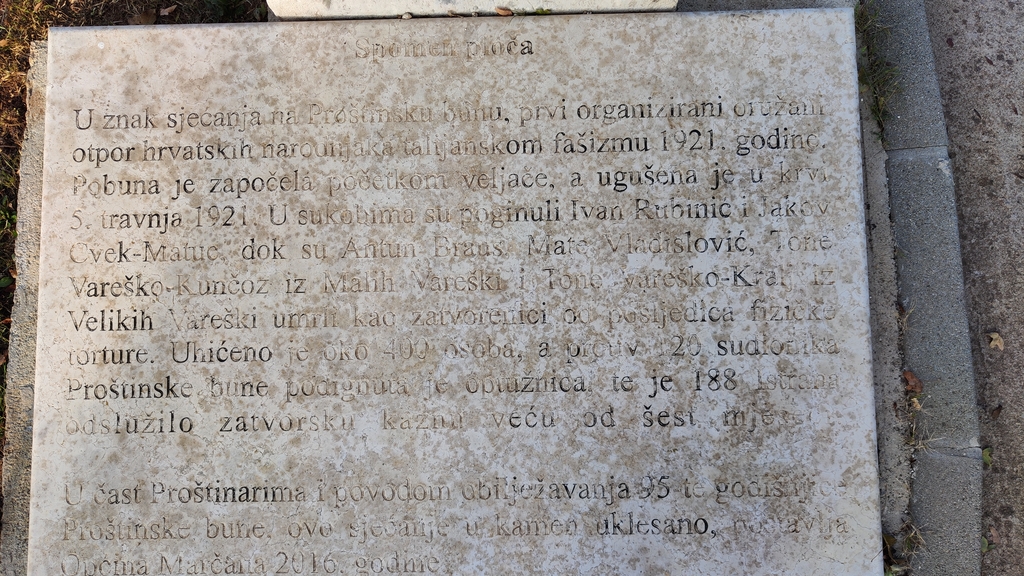 Spomen ploča
U znak sjećanja na Proštinsku bunu, prvi organizirani oružani
otpor hrvatskih narodnjaka talijanskom fašizmu 1921. godine.
Pobuna je započela početkom veljače, a ugušena je u krvi
5. travnja 1921. U sukobima su poginuli Ivan Rubinić i Jakov
Cvek-Matuc, dok su Antun Braus, Mate Vladislović, Tone
Vareško-Kunčoz iz Malih Vareški i Tone Vareško-Kralj iz
Velikih Vareški umrli kao zatvorenici od posljedica fizičke
torture. Uhićeno je oko 400 osoba, a protiv 120 sudionika
Proštinske bune podignuta je optužnica, te je 188 Istrana
odslužilo zatvorsku kaznu veću od šest mjeseci.
U čast Proštinarima i povodom obilježavanja 95-te godišnjice
Proštinske bune, ovo sjećanje u kamen uklesano, postavlja
Općina Marčana 2016. godine